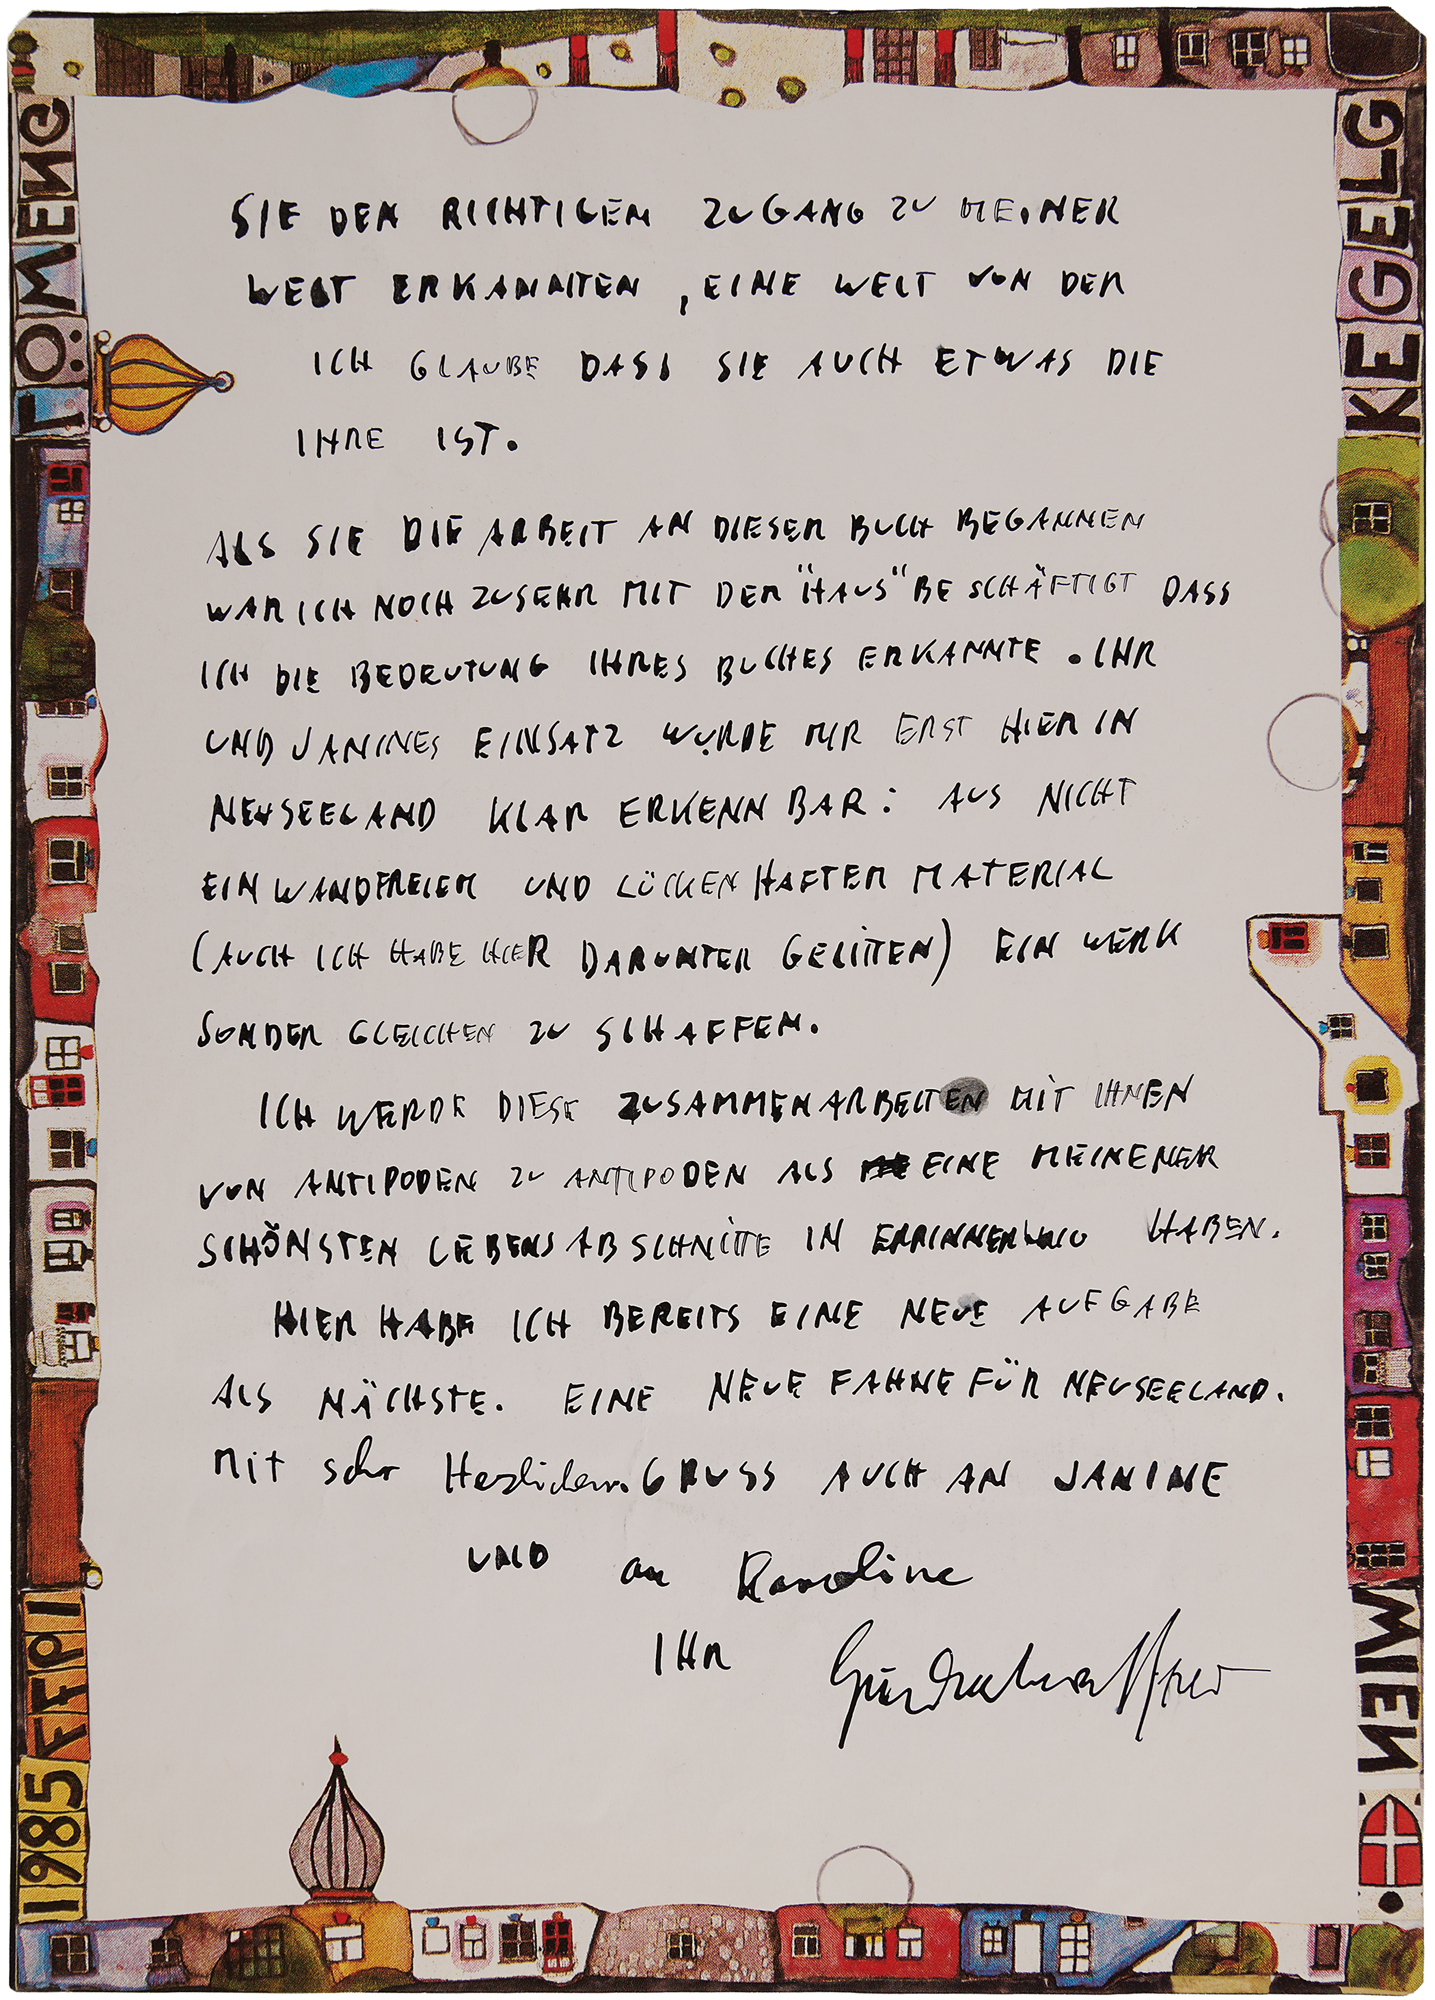 SIE DEN RICHTIGEN ZUGANG ZU MEINER
WELT ERKANNTEN, EINE WELT VON DER
ICH GLAUBE DASS SIE AUCH ETWAS DIE
IHRE IST.
ALS SIE DIE ARBEIT AN DIESER BUCH BEGANNEN
WAR ICH NOCH ZUSEHR MIT DEM "HAUS" BESCHÄFTIGT DASS
ICH DIE BEDEUTUNG IHRES BUCHES ERKANNTE. IHR
UND JANINES EINSATZ WURDE MIR ERST HIER IN
NEUSEELAND KLAR ERKENNBAR: AUS NICHT
EINWANDFREIEM UND LÜCKENHAFTEM MATERIAL
(AUCH ICH HABE HIER DARUNTER GELITTEN) EIN WERK
SONDER GLEICHEN ZU SCHAFFEN.
ICH WERDE DIESE ZUSAMMENARBEITEN MIT IHNEN
VON ANTIPODEN ZU ANTIPODEN ALS EINE MEINENER
SCHÖNSTEN LEBENSABSCHNITTE IN ERRINNERUNG HABEN.
HIER HABE ICH BEREITS EINE NEUE AUFGABE
ALS NÄCHSTE. EINE NEUE FAHNE FÜR NEUSEELAND.
Mit sehr Herzlichem GRUSS AUCH AN JANINE
UND an Karoline
IHR Hundertwasser
LÖMENG
1985 FFPI
KEGELG
WIEN